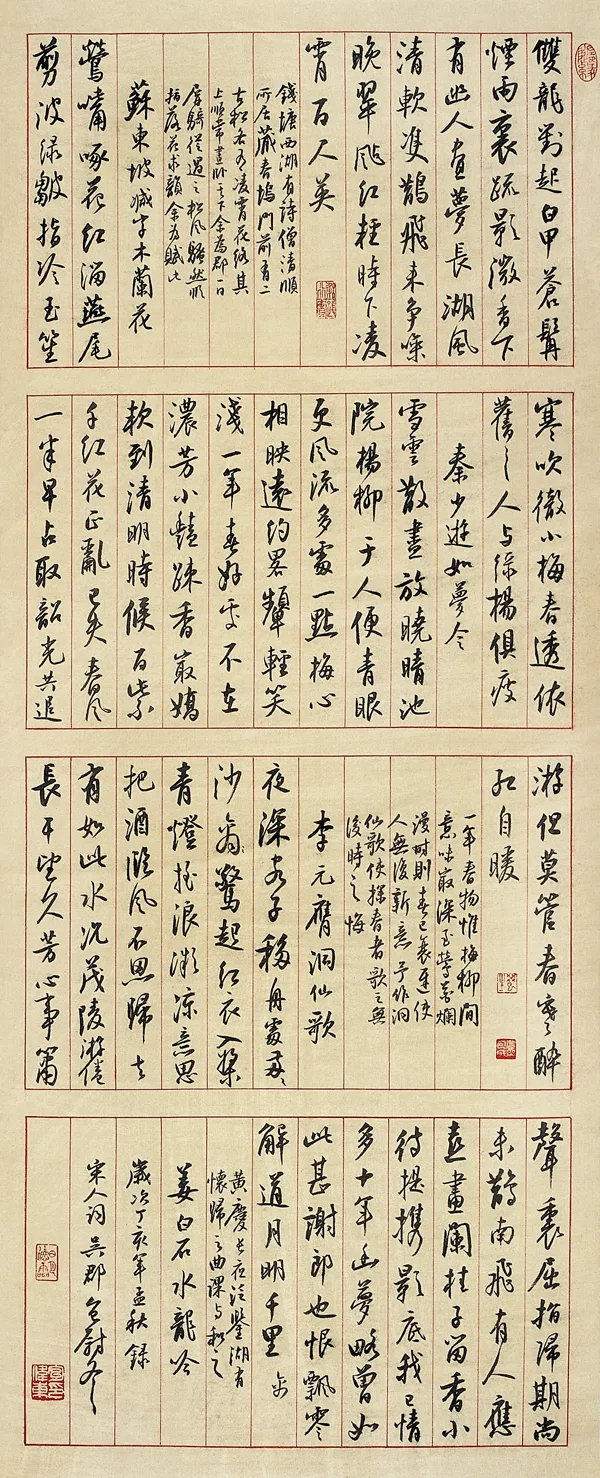 雙龍對起白甲蒼髯
煙雨裏疏影微香下
有幽人晝夢長湖風
清軟雙鵲飛來爭噪
晚翠颭紅輕時下凌
霄百人英
錢塘西湖有詩僧清順
所居藏春塢門前有二
古松各有凌霄花絡其
上順常晝臥其下余為郡一日
屏騎從過之松風騷然順
指落花求韻余為賦此
蘇東坡減字木蘭花
鶯嘴啄花紅溜燕尾
剪波綠皺指冷玉笙
寒吹徹小梅春透依
舊〻人與綠楊俱瘦
秦少游如夢令
雪雲散盡放曉晴池
院楊柳于人便青眼
更風流多處一點梅心
相映遠約略顰輕笑
淺一年春好處不在
濃芳小艷疎香最嬌
軟到清明時候百紫
千紅花正亂已失春風
一半早占取韶光共追
游但莫管春寒醉
紅自暖
一年春物惟梅柳間
意味最深至鶯花爛
漫時則春已衰遲使
人無復新意予作洞
仙歌使探春者歌之無
後時之悔
李元膺洞仙歌
夜深客子移舟處兩〻
沙禽驚起紅衣入槳
青燈搖浪微涼意思
把酒臨風不思歸去
有如此水況茂陵游倦
長干望久芳心事簫
聲裏屈指歸期尚
未鵲南飛有人應
喜畫闌桂子留香小
待提攜影底我已情
多十年幽夢略曾如
此甚謝郎也恨飄零
解道月明千里
黃慶長夜泛鑒湖有
懷歸之曲課與和之
姜白石水龍吟
歲次丁亥年孟秋錄
宋人詞吳郡